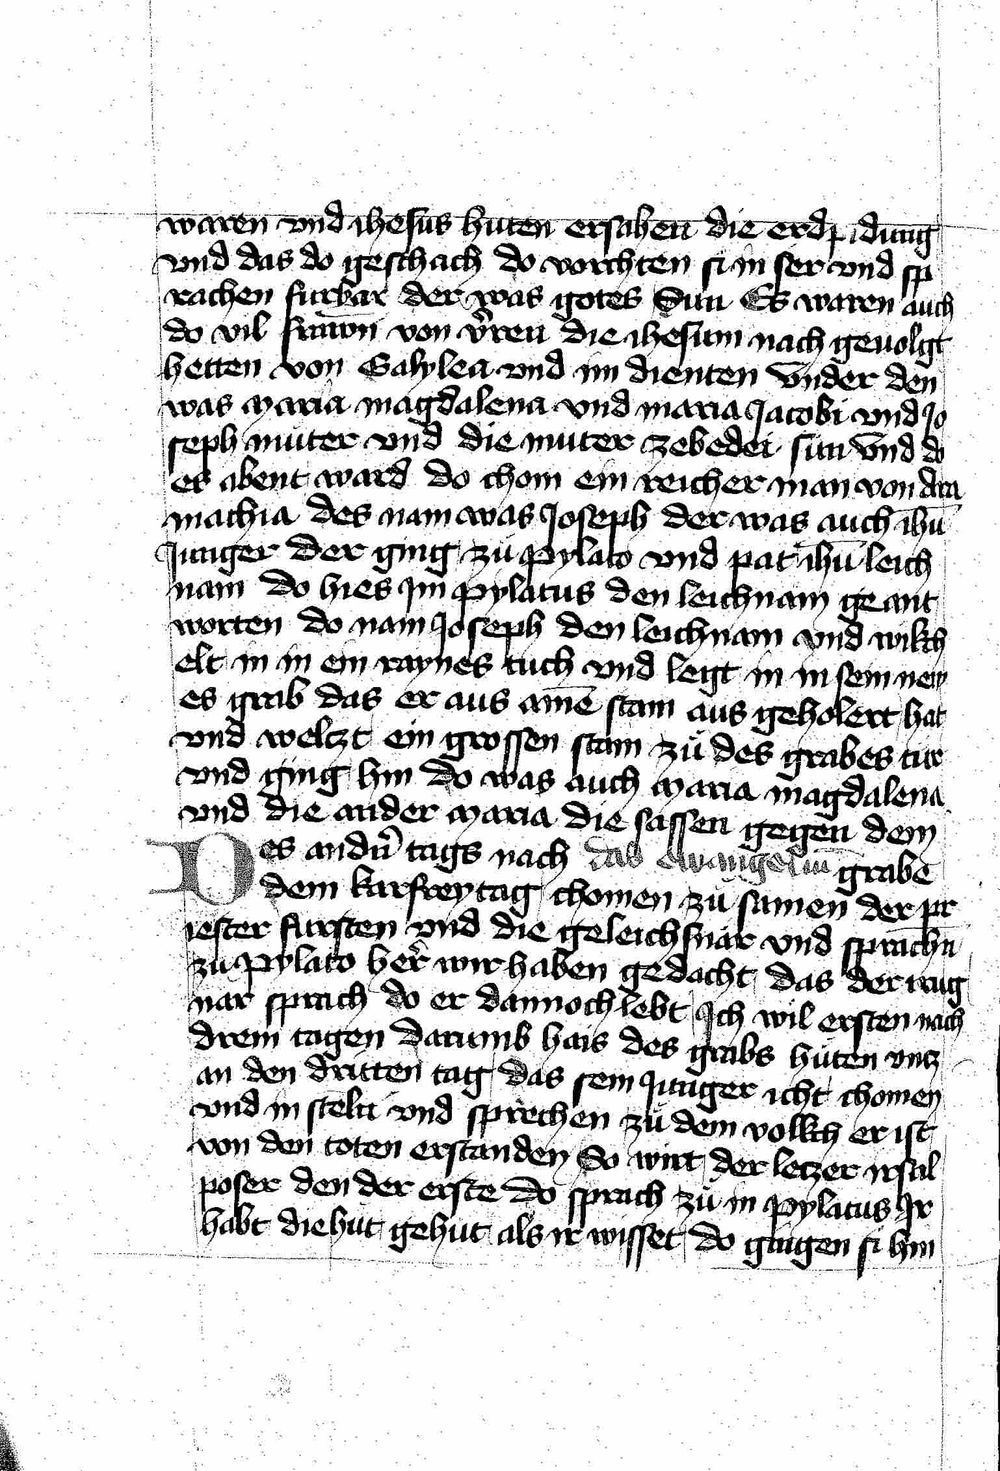 waren vnd ihesus huten ersahen die erdpidung
vnd das do geschach do vorchten si in ser vnd sp
rachen furbar der was gotes Sun Es waren auch
do vil frawn von v̉ren die ihesum nach geuolgt
hetten von Galylea vnd im dienten vnder den
was maria magdalena vnd maria Jacobi vnd Jo
seph muter vnd die muter zebedei sun vnd do
es abent ward do chom ein reicher man von Ara
machia des nam was Joseph der was auch ihū
Junger der ging zu pylato vnd pat ihū leich
nam do hies Im pylatus den leichnam geant
worten do nam Joseph den leichnam vnd wikch
elt in in ein raynes tuch vnd legt in in sein new
es grab das er aus aīnē stain aus geholert hat
vnd welczt ein grossen stain zů des grabes tür
vnd ging hin do was auch maria magdalena
vnd die ander maria die sassen gegen dem
Des andr̉n tags nach das ewangeliū grabe
dem karfreytag chomen zů samen der pr
iester fursten vnd die geleichsnar vnd sprachn̄
zu pylato her̉ wir haben gedacht das der trug
nar sprach do er dannoch lebt Ich wil ersten nach
drein tagen darumb hais des grabs hüten vncz
an den dritten tag das sein Junger icht chomen
vnd in steln vnd sprechen zů dem volkch er ist
von den toten erstanden So wirt der leczer irsal
poser den der erste do sprach zů in pylatus Ir
habt die hut gehut als ir wisset do gingen si hin